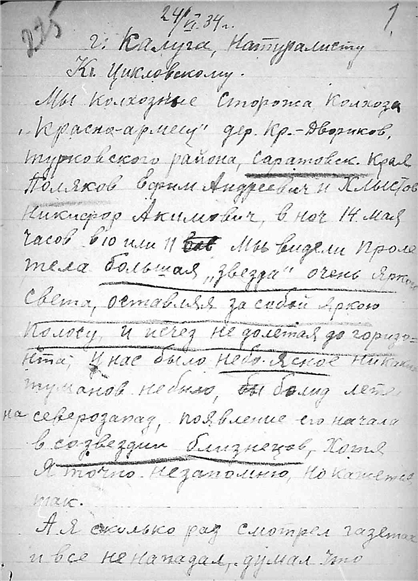 225
24/VI 34 г.
1
г. Калуга, Натуралисту
К. Цикловскому.
Мы колхозные сторожа колхоза
"Красно-армеец" дер. Кр-Двориков,
турковского района, саратовск. края
Поляков Ефим Андреевич и Хлыстов
Никифор Акимович, в ноч 14 мая
часов в 10 или 11 мы видели проле
тела большая "звезда" очень ярко
света, оставляя за собой яркою
полосу, и исчез не долетая до горизо-
нта, у нас было небо ясное никаких
туманов небыло, болид летел
на северозапад, появление его начала
в созвездии близнецов, Хотя
я точно незапомню, но кажется
так.
А я сколько раз смотрел газетах
и все не нападал, думал что